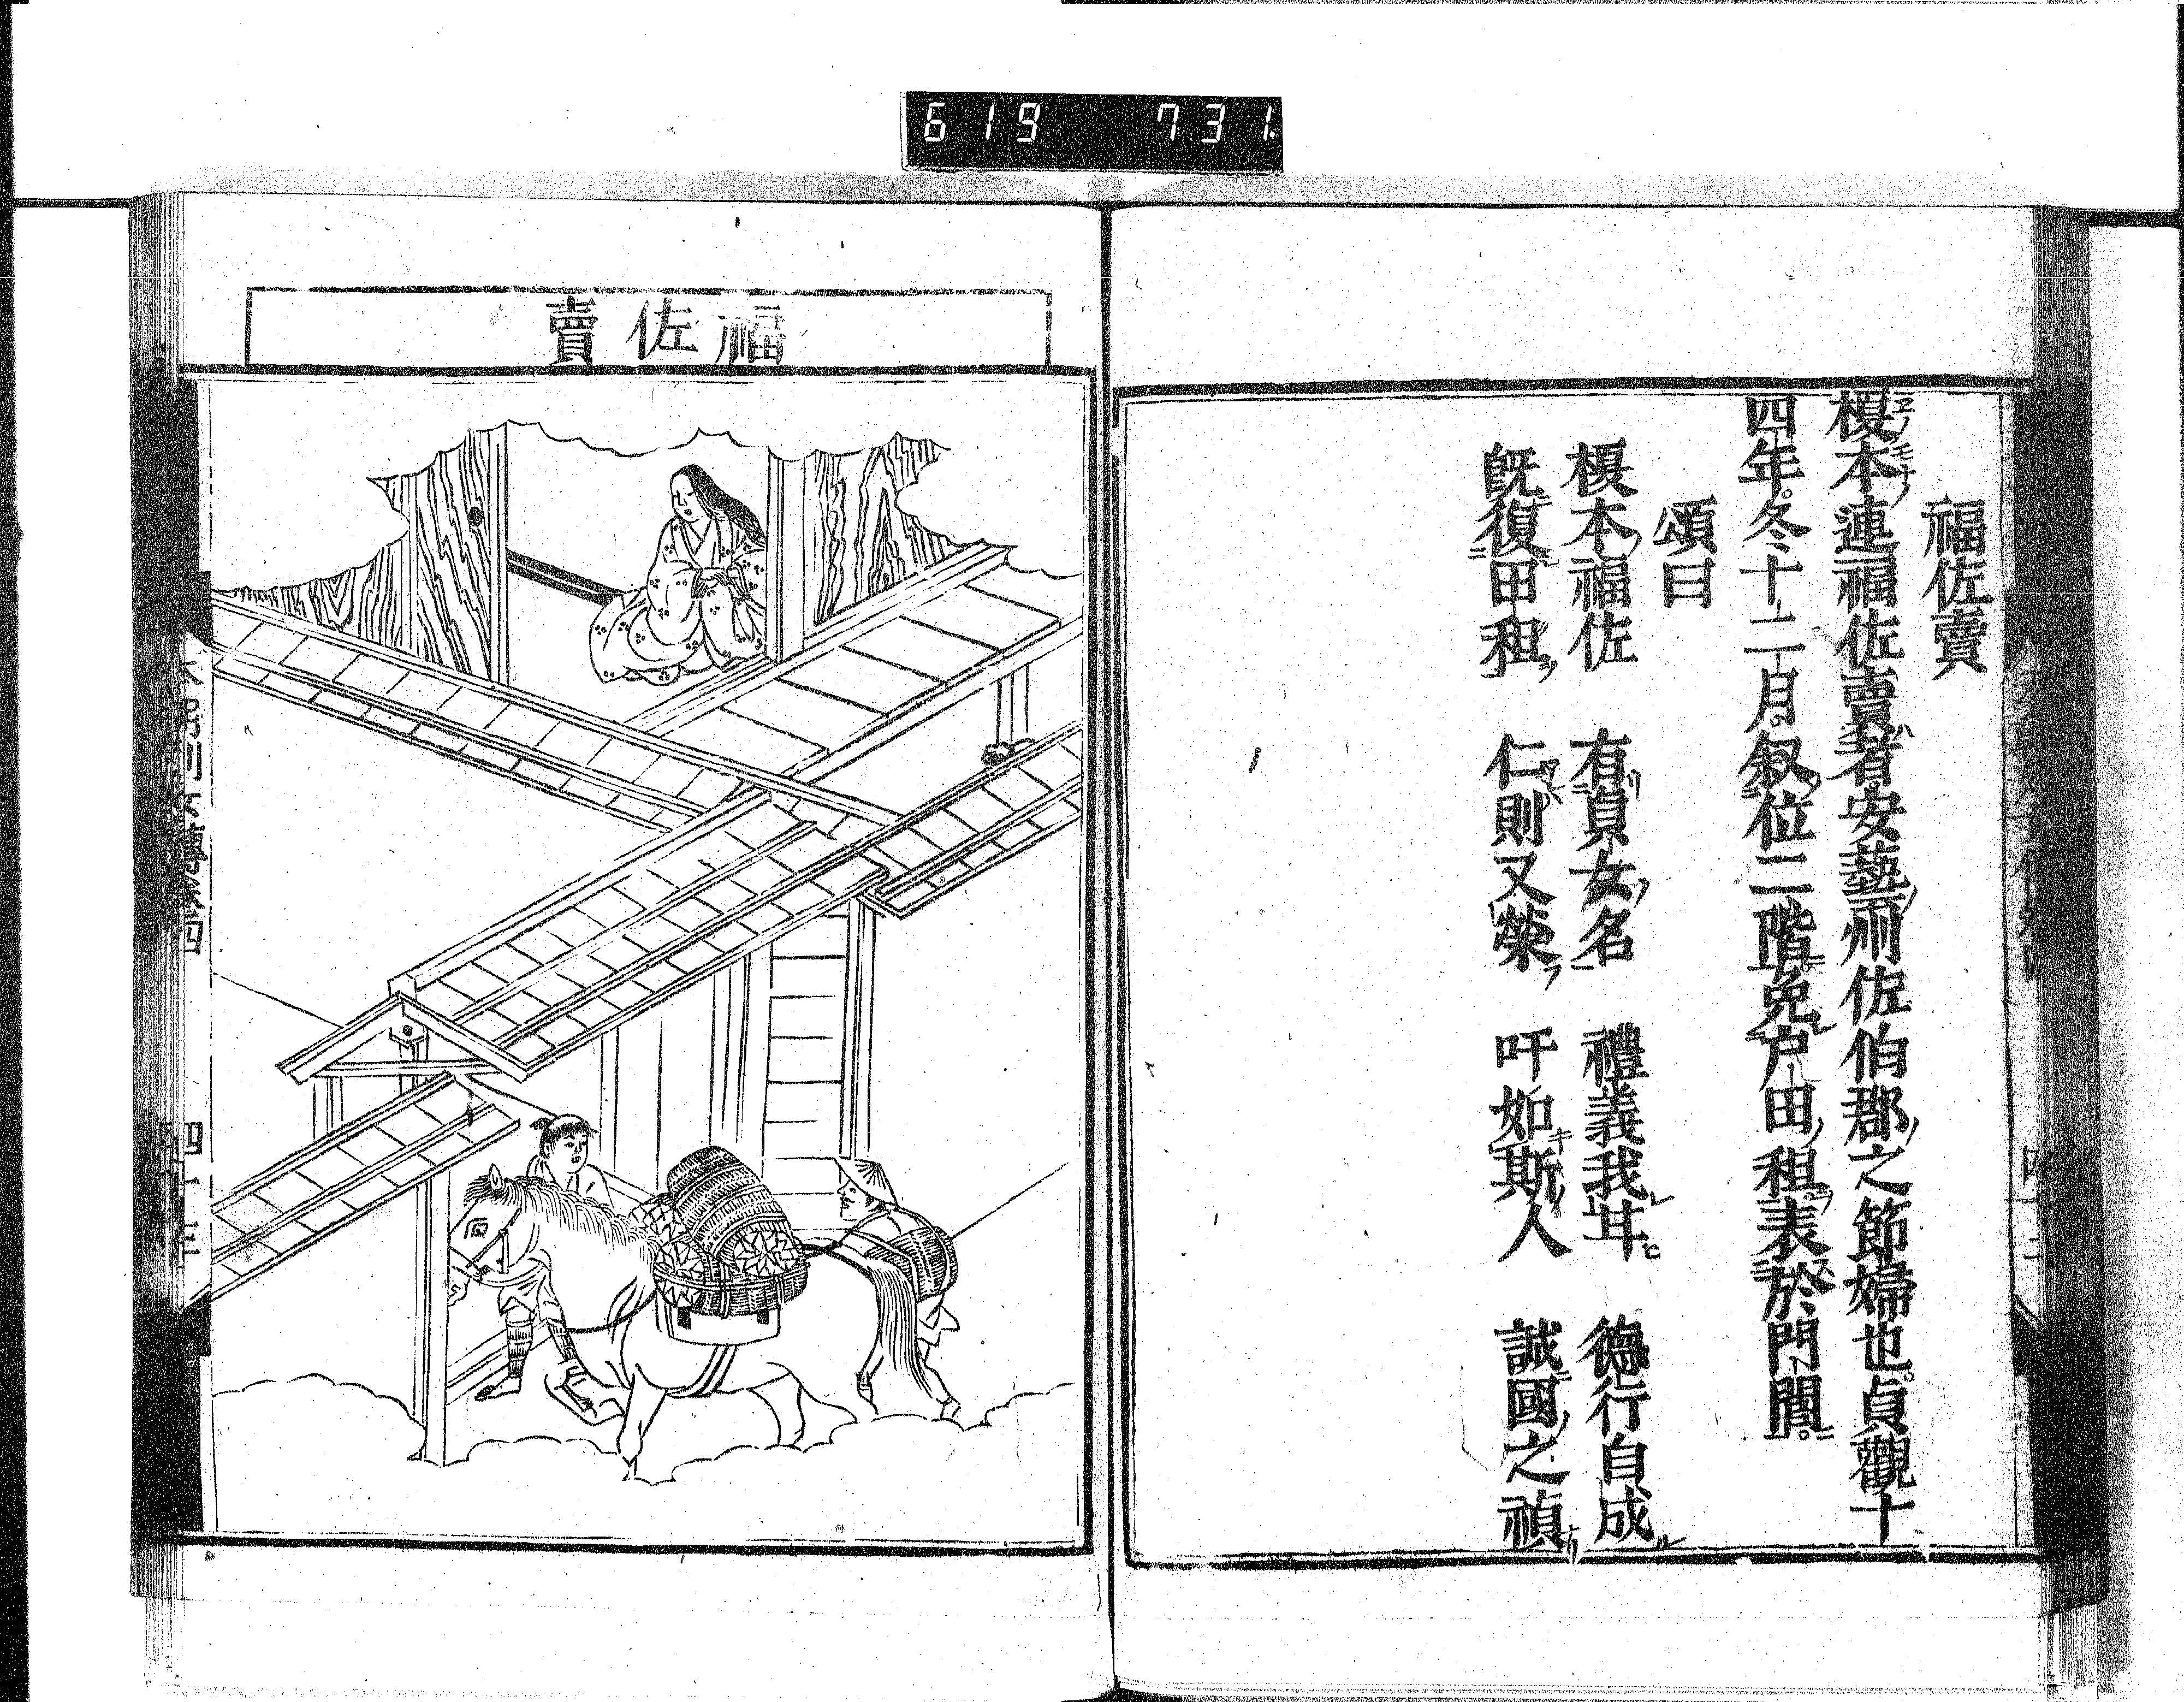 619 731
福佐賣
榎本連福佐賣者安藝州佐伯郡之節婦也貞觀十
四年冬十二月叙位二階免户田租表於門閭
頌曰
榎本福佐 有貞女名 禮義我耳 德行自成
既復田租 仁則又榮 吁如斯人 誠國之禎
福佐賣
列女傳卷四
四十三